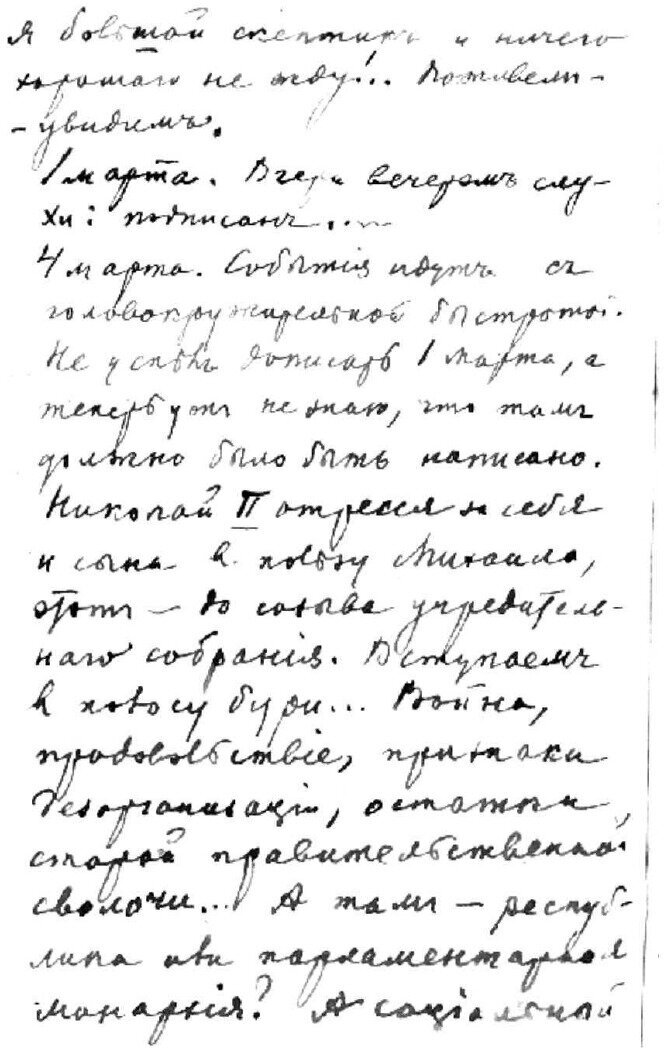 я большой скептикъ и ничего
хорошаго не жду!.. Поживемъ –
– увидимъ.
1 марта. Вчера вечеромъ слу-
хи: подписанъ...
4 марта. Событія идутъ съ
головокружительной быстротой.
Не успѣлъ дописать 1 марта, а
теперь ужъ не знаю, что тамъ
должно было быть написано.
Николай II отрекся за себя
и сына въ пользу Михаила,
этотъ – до созыва учредитель-
наго собранія. Вступаемъ
въ полосу бури... Война,
продовольствіе, признаки
дезорганизаціи, остатки
старой правительственной
сволочи... А тамъ – респуб-
лика или парламентарная
монархія? А соціальный